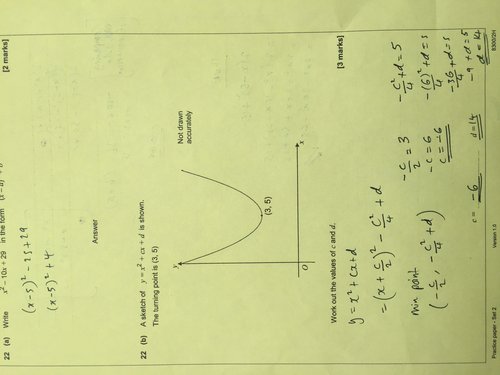 22 (a) Write x² - 10x + 29 in the form (x - a)² + b
[2 marks]
(x-5)² - 25 + 29
(x-5)² + 4
Answer
22 (b) A sketch of y = x² + cx + d is shown.
The turning point is (3, 5)
y
(3, 5)
Not drawn
accurately
O
x
Work out the values of c and d.
[3 marks]
y = x² + cx + d
= (x + c/2)² - c²/4 + d
min point
(-c/2, -c²/4 + d)
-c/2 = 3
-c = 6
c = -6
-c²/4 + d = 5
-(6)²/4 + d = 5
-36/4 + d = 5
-9 + d = 5
d = 14
c = -6
d = 14
Practice paper - Set 2
Version 1.0
8300/2H